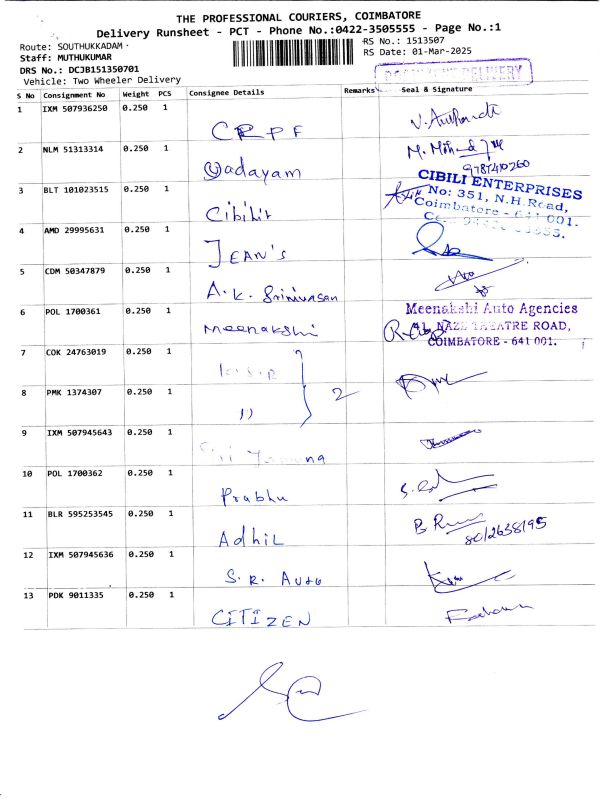 THE PROFESSIONAL COURIERS, COIMBATORE
Delivery Runsheet - PCT - Phone No.:0422-3505555 - Page No.:1
Route: SOUTHUKKADAM
RS No.: 1513507
Staff: MUTHUKUMAR
RS Date: 01-Mar-2025
DRS No.: DCJB151350701
Vehicle: Two Wheeler Delivery
DELIVERY
S No Consignment No Weight PCS Consignee Details Remarks Seal & Signature
1 IXM 507936250 0.250 1
CRPF
2 NLM 51313314 0.250 1
Vadayam
9787410260
3 BLT 101023515 0.250 1
Cibihit
CIBILI ENTERPRISES
No: 351, N.H. Road,
Coimbatore - 641 001.
4 AMD 29995631 0.250 1
JEAN'S
5 CDM 50347879 0.250 1
A.K. Srinivasan
6 POL 1700361 0.250 1
Meenakshi
Meenakshi Auto Agencies
41, NAZE THEATRE ROAD,
COIMBATORE - 641 001.
7 COK 24763019 0.250 1
8 PMK 1374307 0.250 1
11
2
9 IXM 507945643 0.250 1
10 POL 1700362 0.250 1
Prabhu
11 BLR 595253545 0.250 1
Adhil
12 IXM 507945636 0.250 1
S.R. Auto
13 PDK 9011335 0.250 1
CITIZEN